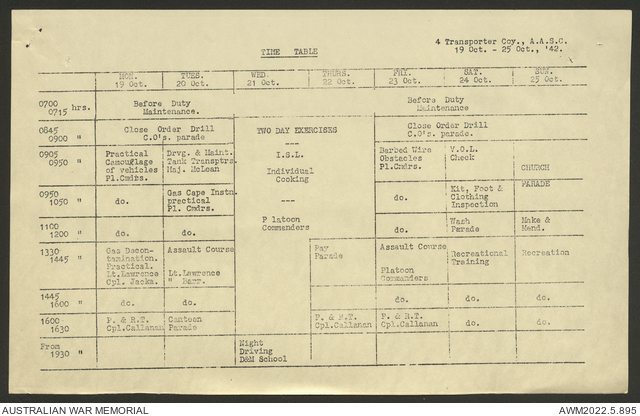 4 Transporter Coy., A.A.S.C.
TIME TABLE
19 Oct. - 25 Oct., '42.
MON. TUES. WED. THURS. FRI. SAT. SUN.
19 Oct. 20 Oct. 21 Oct. 22 Oct. 23 Oct. 24 Oct. 25 Oct.
0700 hrs. Before Duty Before Duty
0715 Maintenance. Maintenance.
0845 Close Order Drill TWO DAY EXERCISES Close Order Drill
0900 " C.O's. parade C.O's. parade.
---
0905 Practical Drvg. & Maint. I.S.L. Barbed Wire V.O.L.
0950 " Camouflage Tank Transptrs. Obstacles Check
of vehicles Maj. McLean Individual Pl.Cmdrs. CHURCH
Pl.Cmdrs. Cooking
PARADE
0950 do. Gas Cape Instn. --- do. Kit, Foot &
1050 " practical Clothing
Pl. Cmdrs. Inspection
1100 do. do. Platoon do. Wash Make &
1200 " Commanders Parade Mend.
1330 Gas Decon- Assault Course Pay Assault Course Recreational Recreation
1445 " tamination. Parade Training
Practical. Platoon
Lt.Lawrence Lt.Lawrence Commanders
Cpl. Jacka. " Barr.
1445 do. do. do. do. do.
1600 "
1600 P. & R.T. Canteen P. & R.T. P. & R.T. do. do.
1630 Cpl.Callanan Parade Cpl.Callanan Cpl.Callanan
From Night
1930 " Driving
D&M School
AUSTRALIAN WAR MEMORIAL AWM2022.5.895